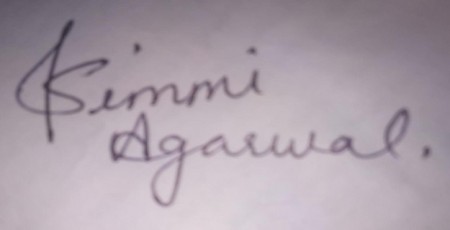 Simmi
Agarwal.